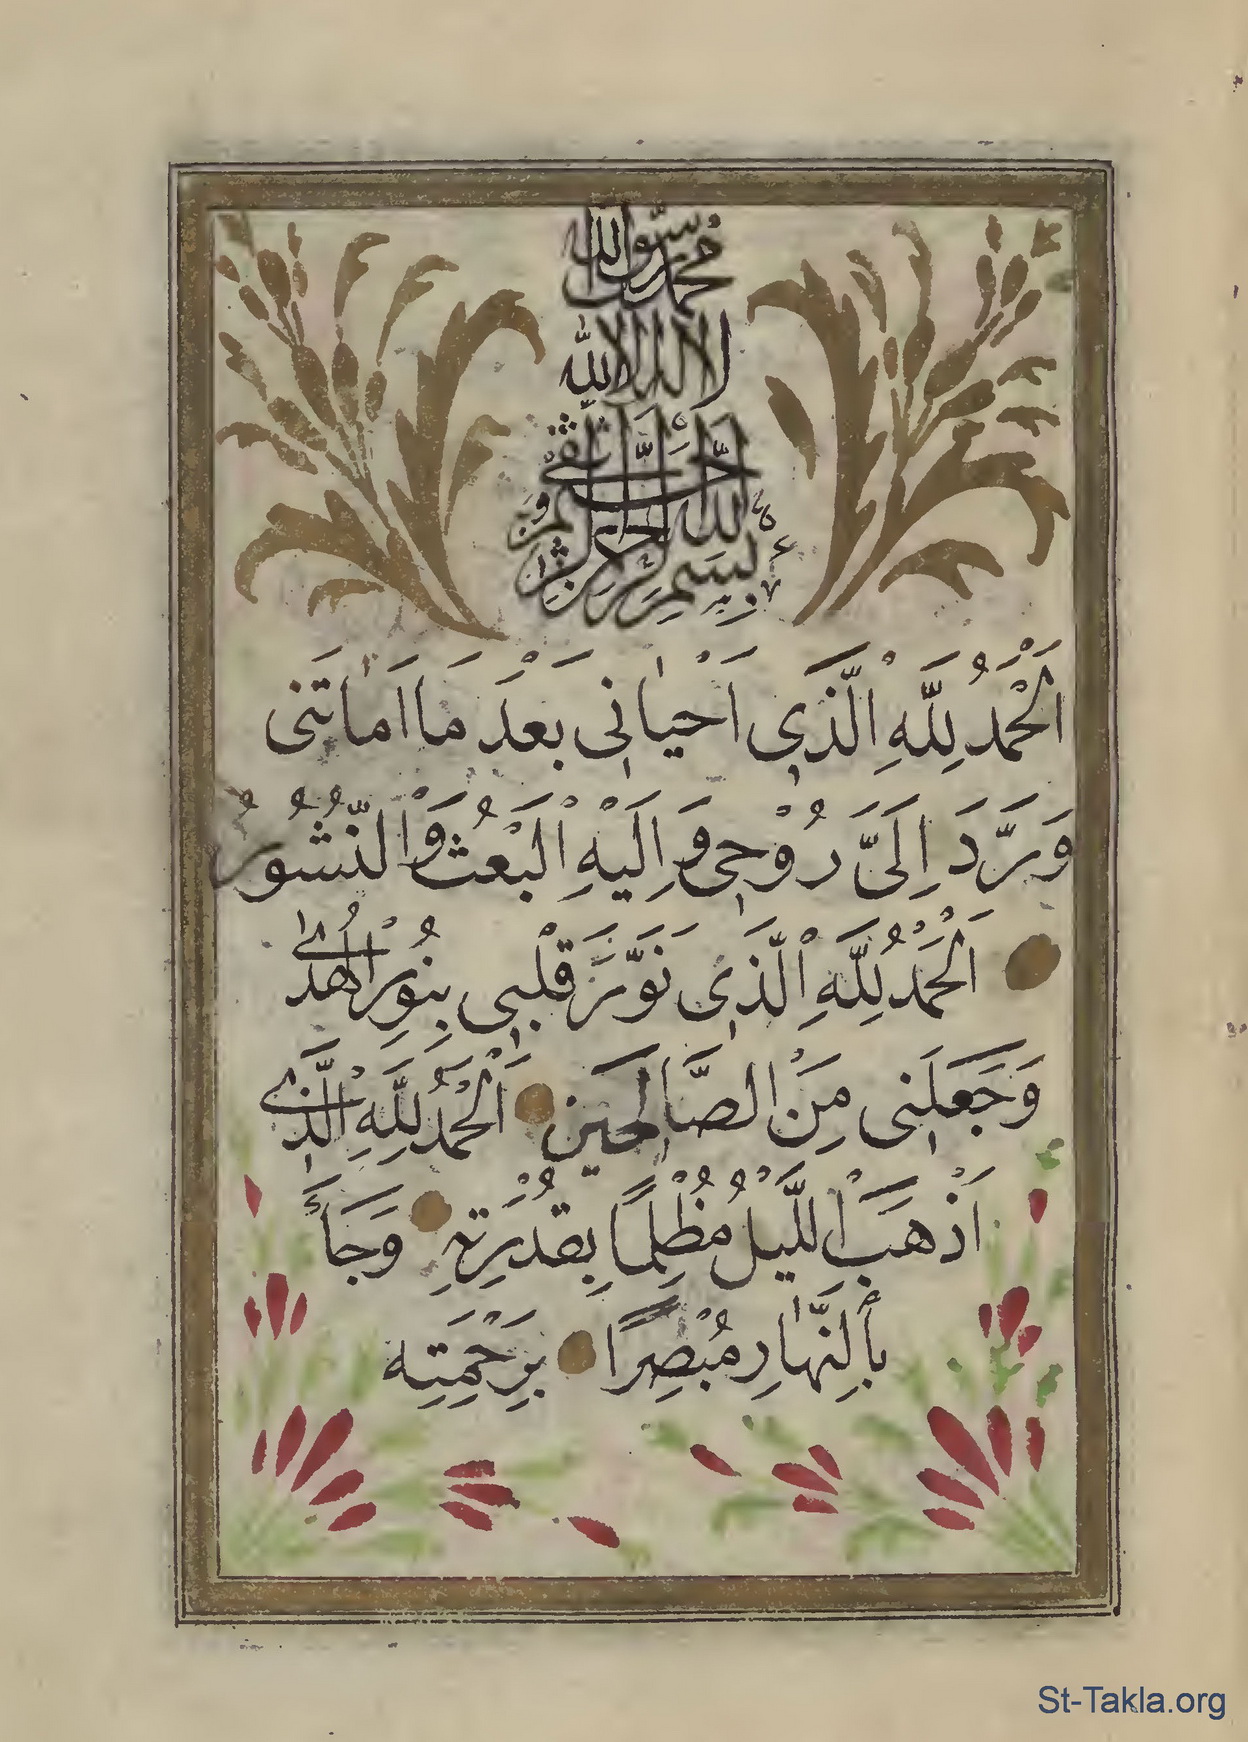 محمد رسول الله
لا اله الا الله
بِسْمِ اللّٰه الرحمن الرحيم
اَلْحَمْدُ لِلّٰهِ الَّذٖى اَحْيَانٖى بَعْدَ مَا اَمَاتَنى
وَرَدَّ اِلَىَّ رُوْحٖى وَاِلَيْهِ الْبَعْثُ وَالنُّشُورُ
اَلْحَمْدُ لِلّٰهِ الَّذٖى نَوَّرَ قَلْبٖى بِنُورِ الْهُدٰى
وَجَعَلَنٖى مِنَ الصَّالِحٖينَ اَلْحَمْدُ لِلّٰهِ الَّذٖى
اَذْهَبَ اللَّيْلَ مُظْلِمًا بِقُدْرَتِهِ وَجَاءَ
بِالنَّهَارِ مُبْصِرًا بِرَحْمَتِه
St-Takla.org